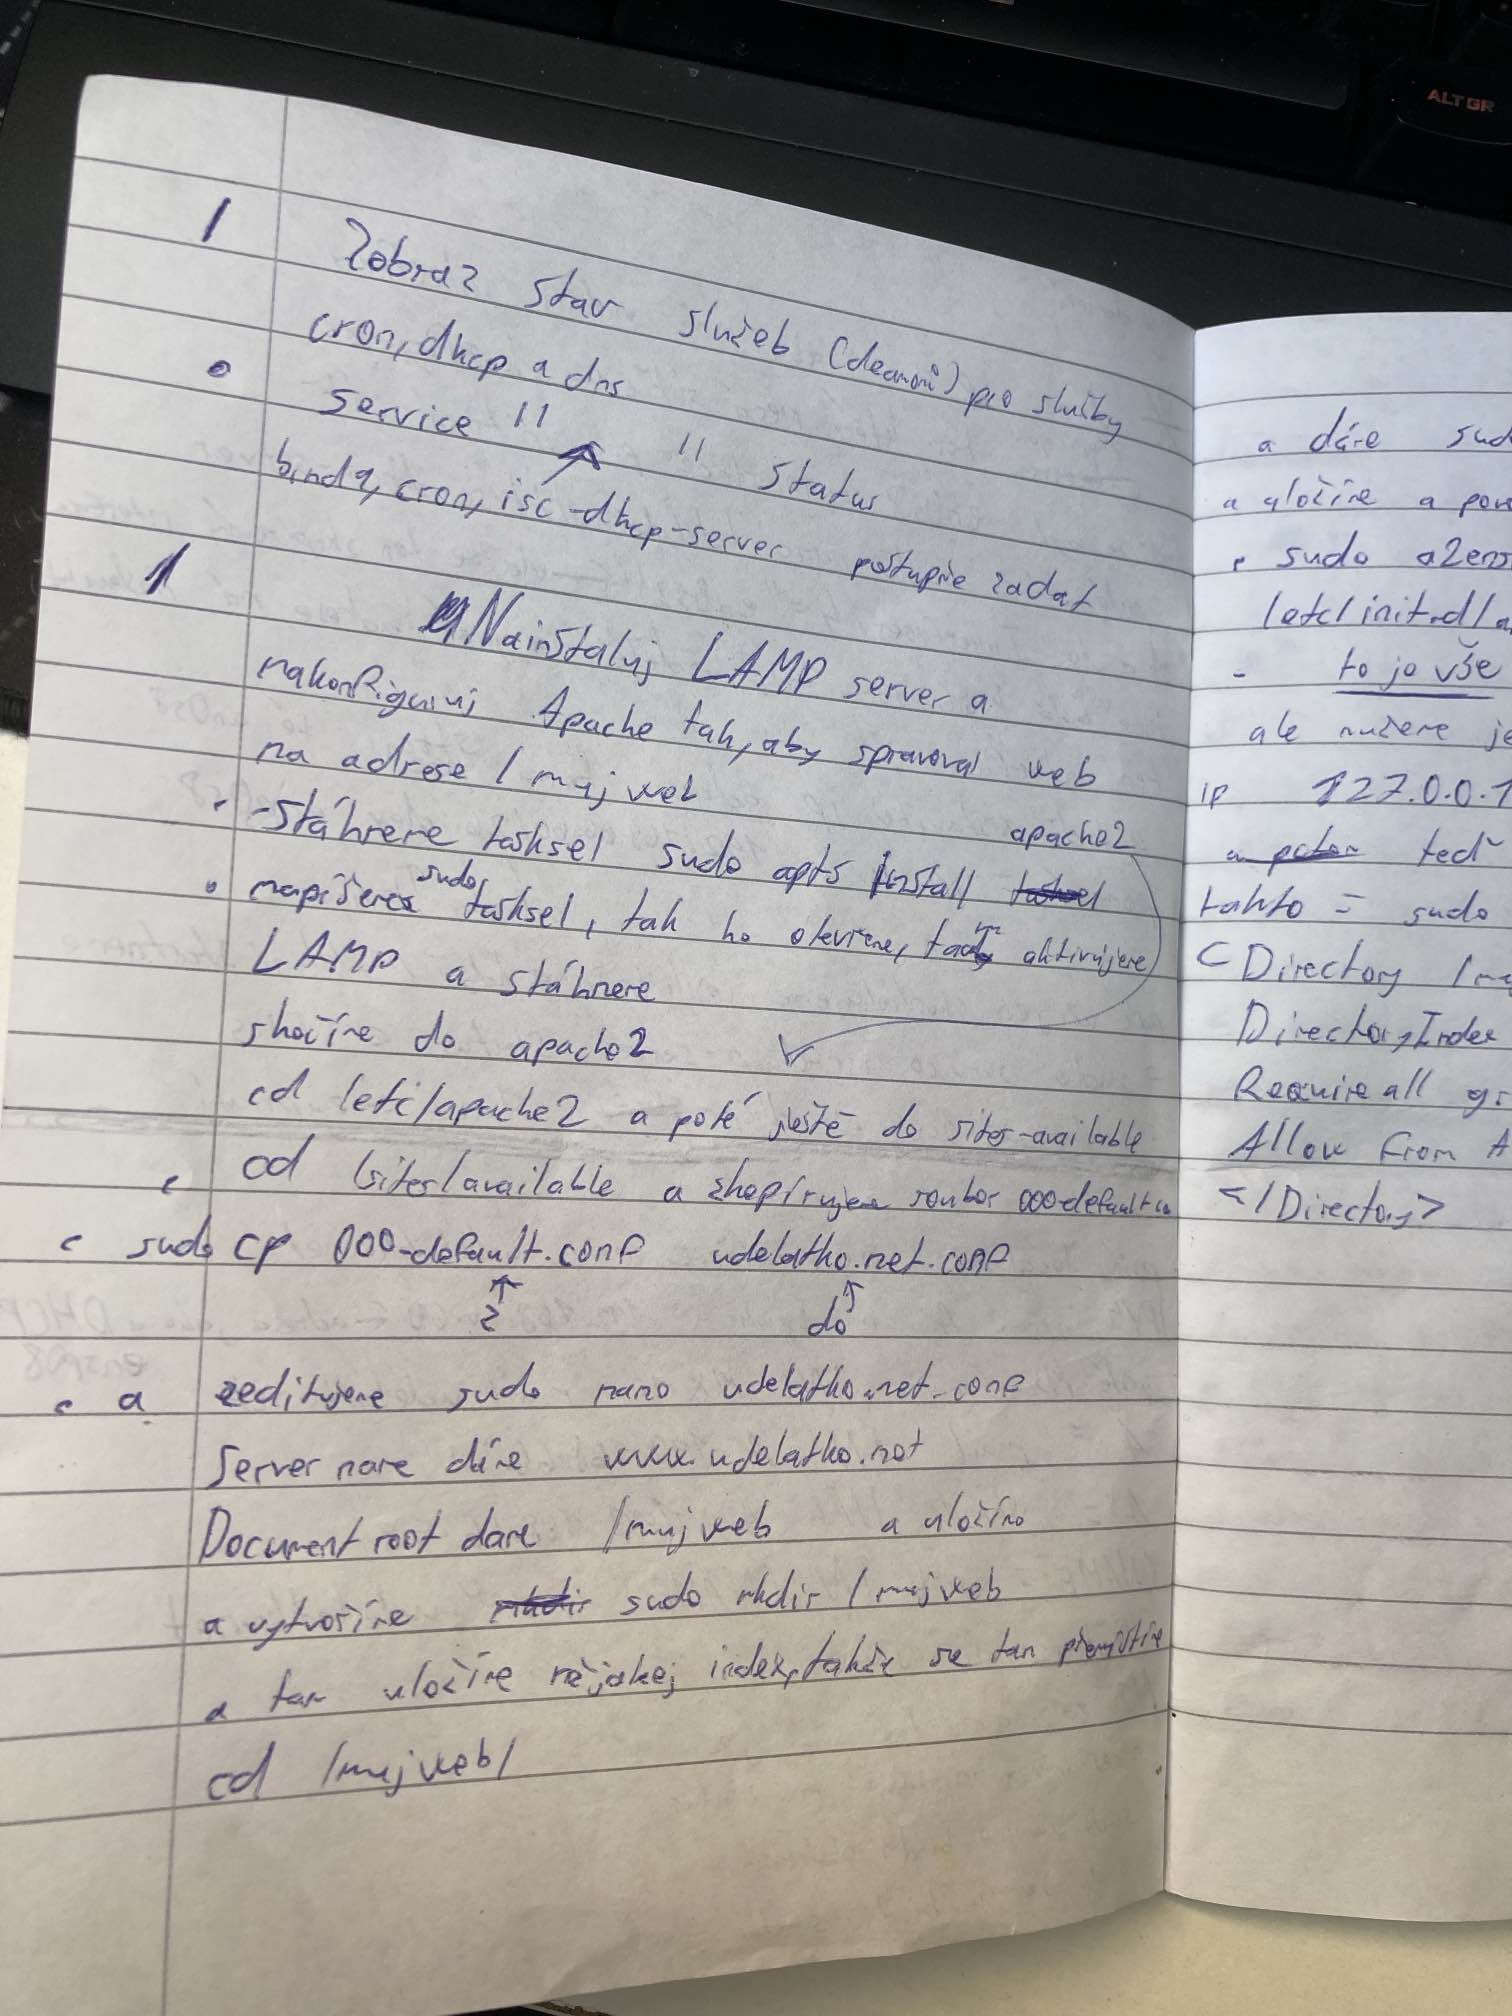 ALT GR
1 Zobraz stav služeb (deamonů) pro služby
cron, dhcp a dns
service " " status
bind9, cron, isc-dhcp-server postupně zadat
1 Nainstaluj LAMP server a
nakonfiguruj Apache tak, aby spravoval web
na adrese /mujweb
apache2
-stáhneme tasksel sudo apts install tasksel
sudo
napíšeme tasksel, tak ho otevřeme, aktivujeme
LAMP a stáhneme
skočíme do apache2
cd /etc/apache2 a poté ještě do sites-available
cd /sites/available a zkopírujeme soubor 000-default.co
sudo cp 000-default.conf udelatko.net.conf
z do
a zeditujeme sudo nano udelatko.net.conf
Server name dáme www.udelatko.net
Document root dame /mujweb a uložíme
a vytvoříme mkdir sudo mkdir /mujweb
a tam uložíme nějakej index, takže se tam přemístíme
cd /mujweb/
a dáme sud
a uložíme a pov
sudo a2ens
/etc/init.d/a
- to je vše
ale můžeme je
ip 127.0.0.1
a potom teď
takto = sudo
<Directory /mu
DirectoryIndex
Require all gr
Allow from A
</Directory>